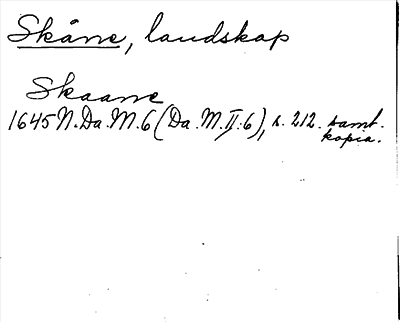 Skåne, landskap
Skaane
1645 N. Da. M. 6 (Da. M. II:6), s. 212. samt.
kopia.